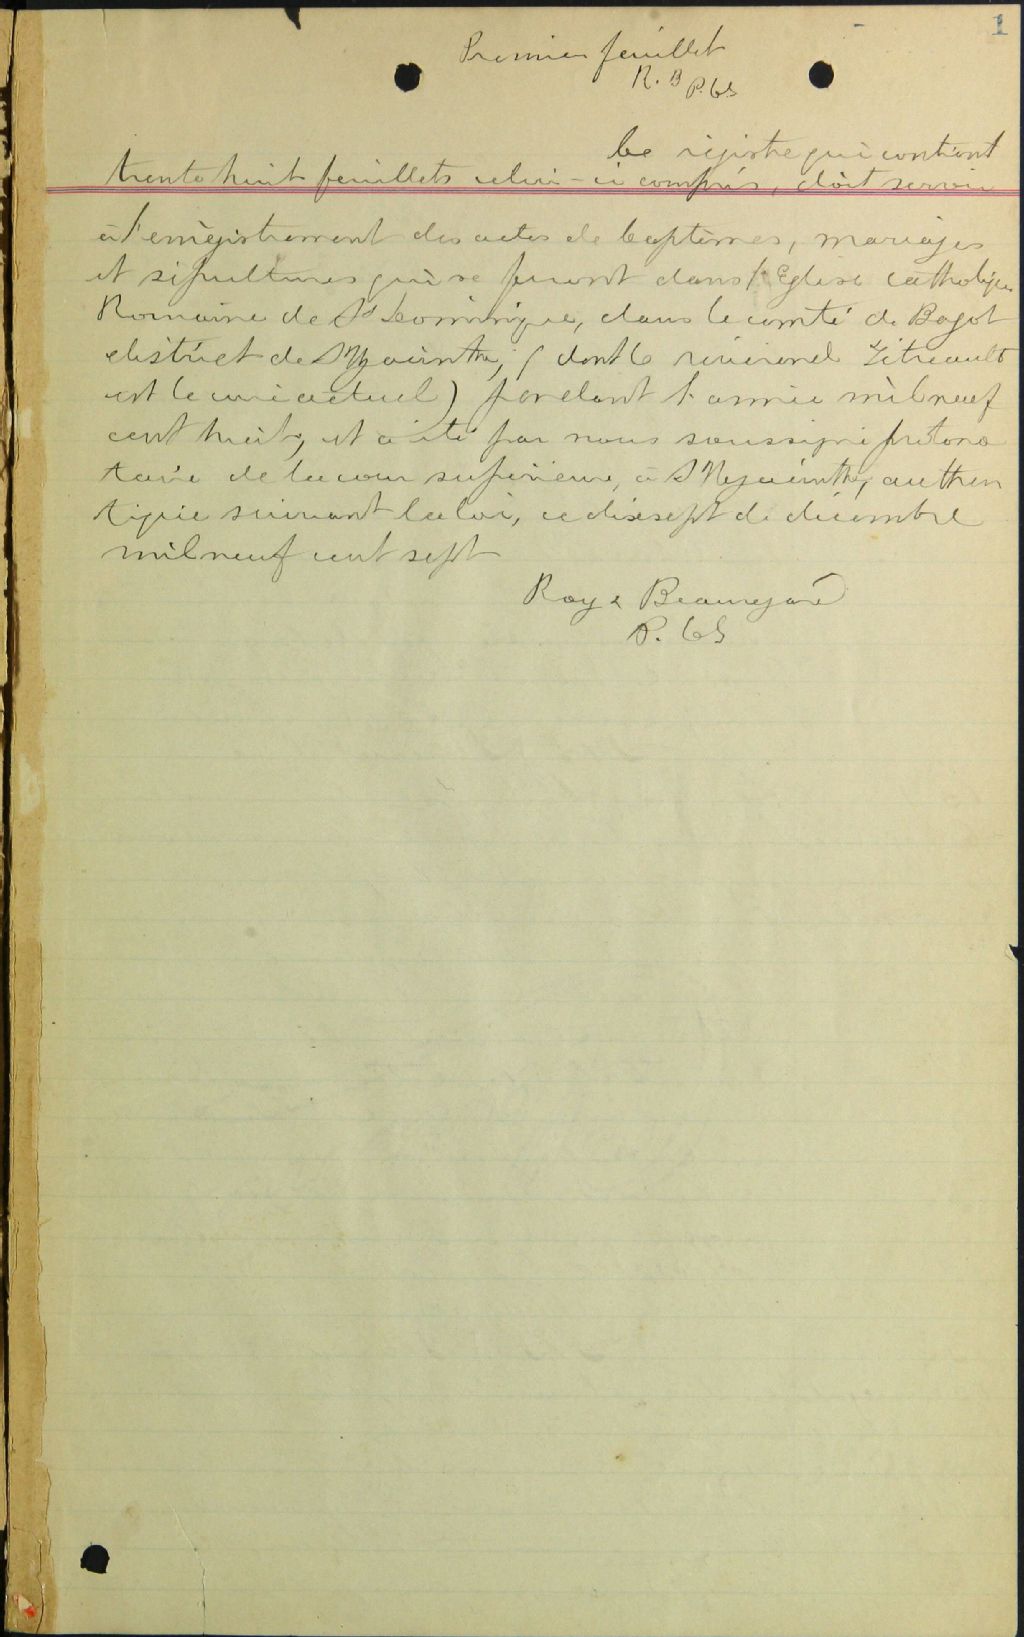 1
Premier feuillet
R. B P.CS
Ce registre qui contient
trente huit feuillets celui-ci compris, doit servir
à l'enregistrement des actes de baptêmes, mariages
et sépultures qui se feront dans l'Eglise catholique
Romaine de St Dominique, dans le comté de Bagot
district de St Hyacinthe, (dont le révérend Tétreault
est le curé actuel) pendant l'année mil neuf
cent huit, et a été par nous soussigné protono
taire de la cour supérieure, à St Hyacinthe, authen
tiqué suivant la loi, ce dix sept de décembre
mil neuf cent sept
Roy & Beauregard
P. CS